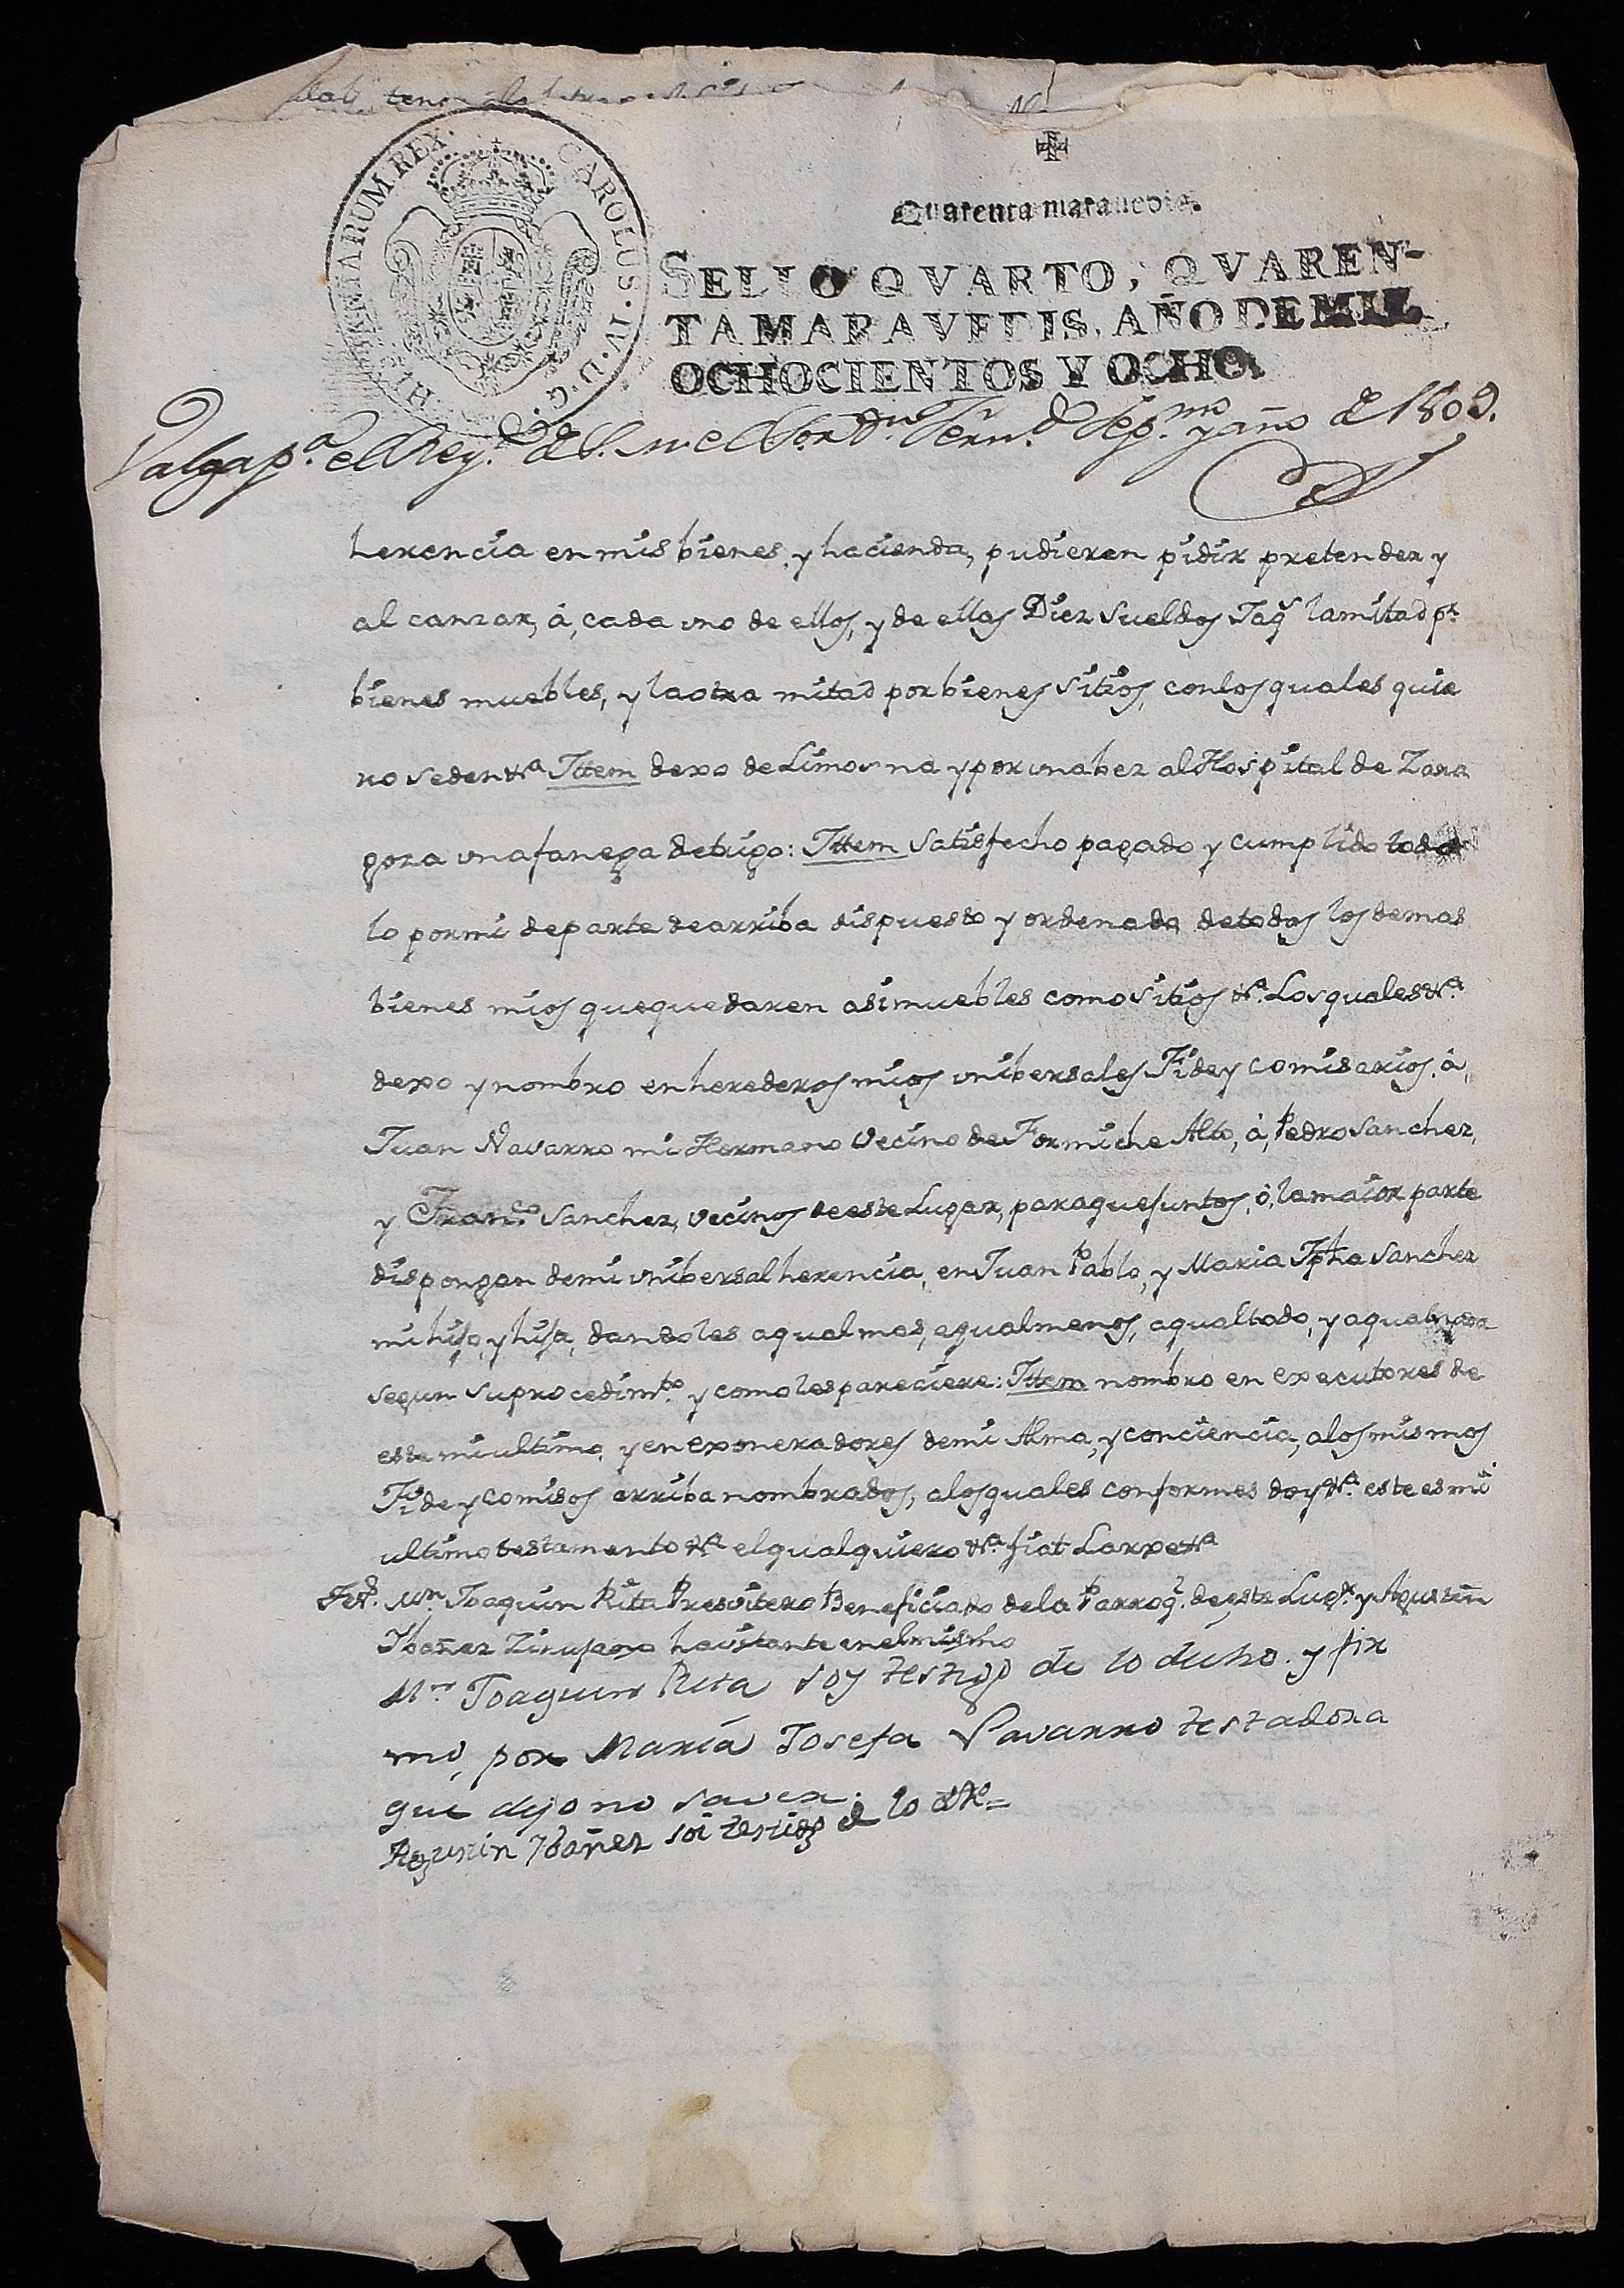 HISPANIARUM REX. CAROLUS·IV·D·G·
Quarenta marauedis.
SELLO QVARTO, QVAREN-
TA MARAVEDIS, AÑO DE MIL
OCHOCIENTOS Y OCHO.
Valga p.ª el Rey.do de S. M. el S.or Dn Fern.do Sep.mo y año de 1809.
herencia en mis bienes, y hacienda, pudieren pidir pretender y
alcanzar, á, cada uno de ellos, y de ellas Diez sueldos Jaq.s la mitad p.r
bienes muebles, y la otra mitad por bienes sitios, con los quales quie
ro seden &.ª Ittem dexo de Limosna y por una bez al Hospital de Zara
goza una fanega de trigo: Ittem satisfecho pagado y cumplido todo
lo por mi de parte de arriba dispuesto y ordenado de todos los demas
bienes mios que quedaren asi muebles como sitios &.ª Los quales &.ª
dexo y nombro en herederos mios unibersales Fideycomisarios. á,
Juan Navarro mi Hermano Vecino de Formiche Alto, á, Pedro Sanchez,
y Fran.co Sanchez, vecinos de este Lugar, para que juntos, ó, la maior parte
dispongan de mi unibersal herencia, en Juan Pablo, y Maria Jpha Sanchez
mi hijo, y hija, dandoles a qual mas, a qual menos, a qual todo, y a qual nada
segun su procedim.to y como les pareciere: Ittem nombro en executores de
este mi ultimo, y en exoneradores de mi Alma, y conciencia, a los mismos
Fideycomisos arriba nombrados, a los quales conformes doy &.ª este es mi
ultimo testamento &.ª el qual quiero &.ª fiat Large &.ª
Test. Mn. Joaquin Rita Presvitero Beneficiado de la Parroq.l de este Lug.r y Agustin
Ibañez Zirujano havitante en el mismo
Mn Joaquin Rita soy testigo de lo dicho. y fir
mo, por María Josefa Navarro testadora
que dijo no saver.
Agustin Ybañez soi testigo de lo dho=